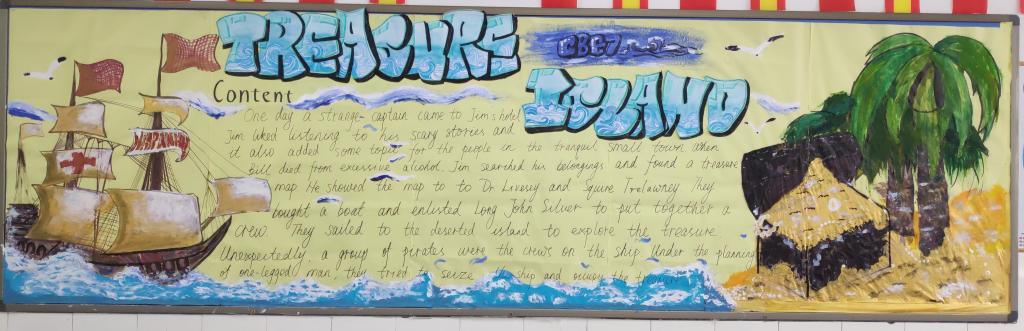 TREASURE
CBC7
ISLAND
Content
One day a strange captain came to Jim's hotel
Jim liked listening to his scary stories and
it also added some topics for the people in the tranquil small town when
Bill died from excessive alcohol. Jim searched his belongings and found a treasure
map He showed the map to to Dr Livesey and Squire Trelawney They
bought a boat and enlisted Long John Silver to put together a
crew. They sailed to the deserted island to explore the treasure.
Unexpectedly, a group of pirates were the crews on the ship Under the planning
of one-legged man, they tried to seize the ship and occupy the